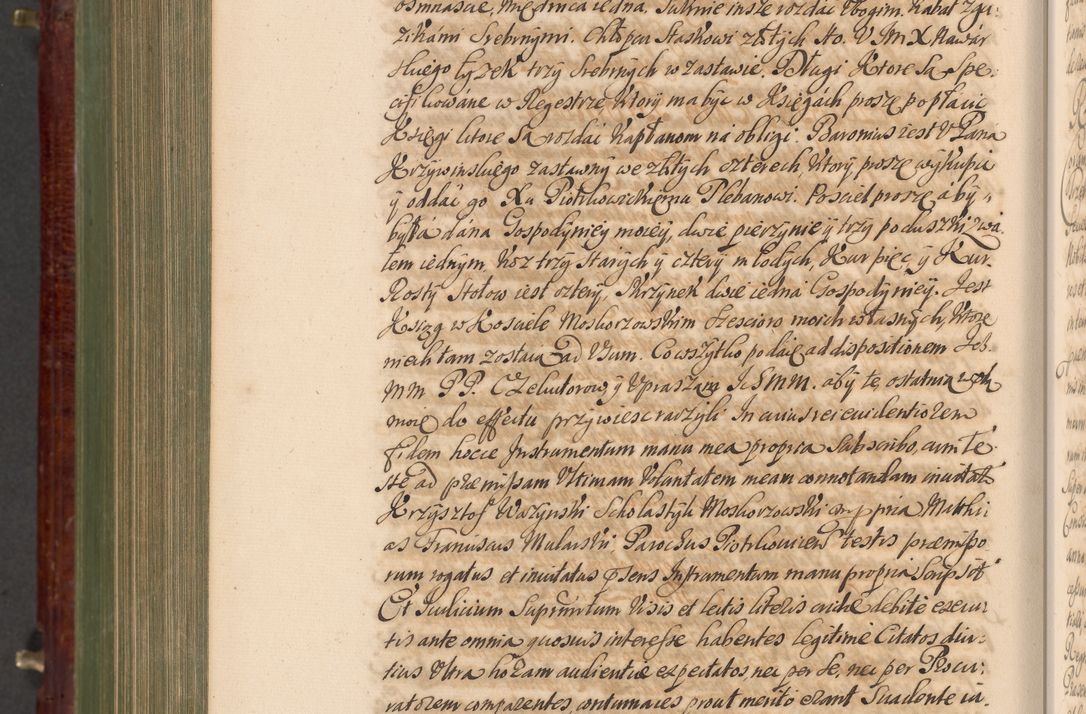 osmnascie, Międnica iedna. Suknie insze rozdac Vbogim. Kabat z gu-
zikami Srebrnymi. Chłopcu Staskowi złotych sto. V JM X Kawar
skiego łyzek trzy srebrnych w zastawie. Długi Ktore sa spe-
cifikowane w Regestrze, Ktory ma byc w Księgach proszę popłacic
Księgi ktore sa rozdac Kapłanom na obligi. Baronius iest V Pana
Krzywinskiego zastawny we złotych czterech, Ktory proszę wykupic
y oddac go Xu Piotrkowickiemu Plebanowi. Posciel proszę aby
była dana Gospodyniey moiey, dwie pierzynie y trzy poduszki, z wa
lem iednym. Koz trzy starych y cztery młodych, Kur pięc y Kur.
Rosty Stołow iest cztery, Skrzynek dwie iedna Gospodyniey. Jest
Ksiąg w Kosciele Moskorzowskim szescioro moich własnych, Ktore
niech tam zostaią ad Vsum. Co wszytko podaię ad dispositionem Ich
MM PP. Exekutorow y Vpraszam Ich MM. aby tę ostatnią wolą
moię do effectu przywiesc raczyli. In cuius rei euidentiorem
fidem hocce Instrumentum manu mea propria subscribo, cum te-
ste ad præmissam Vltimam Voluntatem meam connotandam inuitato
Krzysztof Wazynski Scholastyk Moskorzowski mppria Matthi-
as Franciscus Mularski, Parochus Piotrkouicen testis præmisso-
rum rogatus et inuitatus præsens Instrumentum manu propria scripsit
Et Iudicium Supremum Visis et lectis literis debite execu-
tis ante omnia quosuis interesse habentes legitime Citatos diu-
tius Vltra horam audientiæ expectatos, nec per se, nec per Procu-
ratorem comparentes, contumaces prout merito erant Suadente iu-